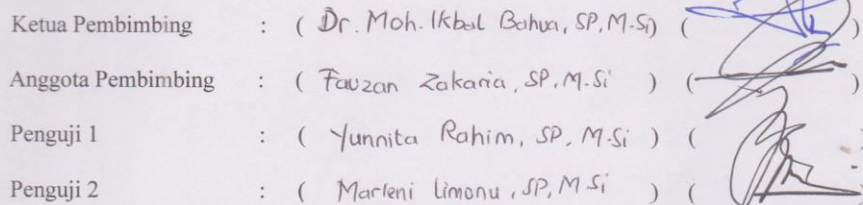 Ketua Pembimbing : ( Dr. Moh. Ikbal Bahua, SP, M.Si) ( )
Anggota Pembimbing : ( Fauzan Zakaria, SP, M.Si ) ( )
Penguji 1 : ( Yunnita Rahim, SP, M.Si ) (
Penguji 2 : ( Marleni Limonu, SP, M Si ) (